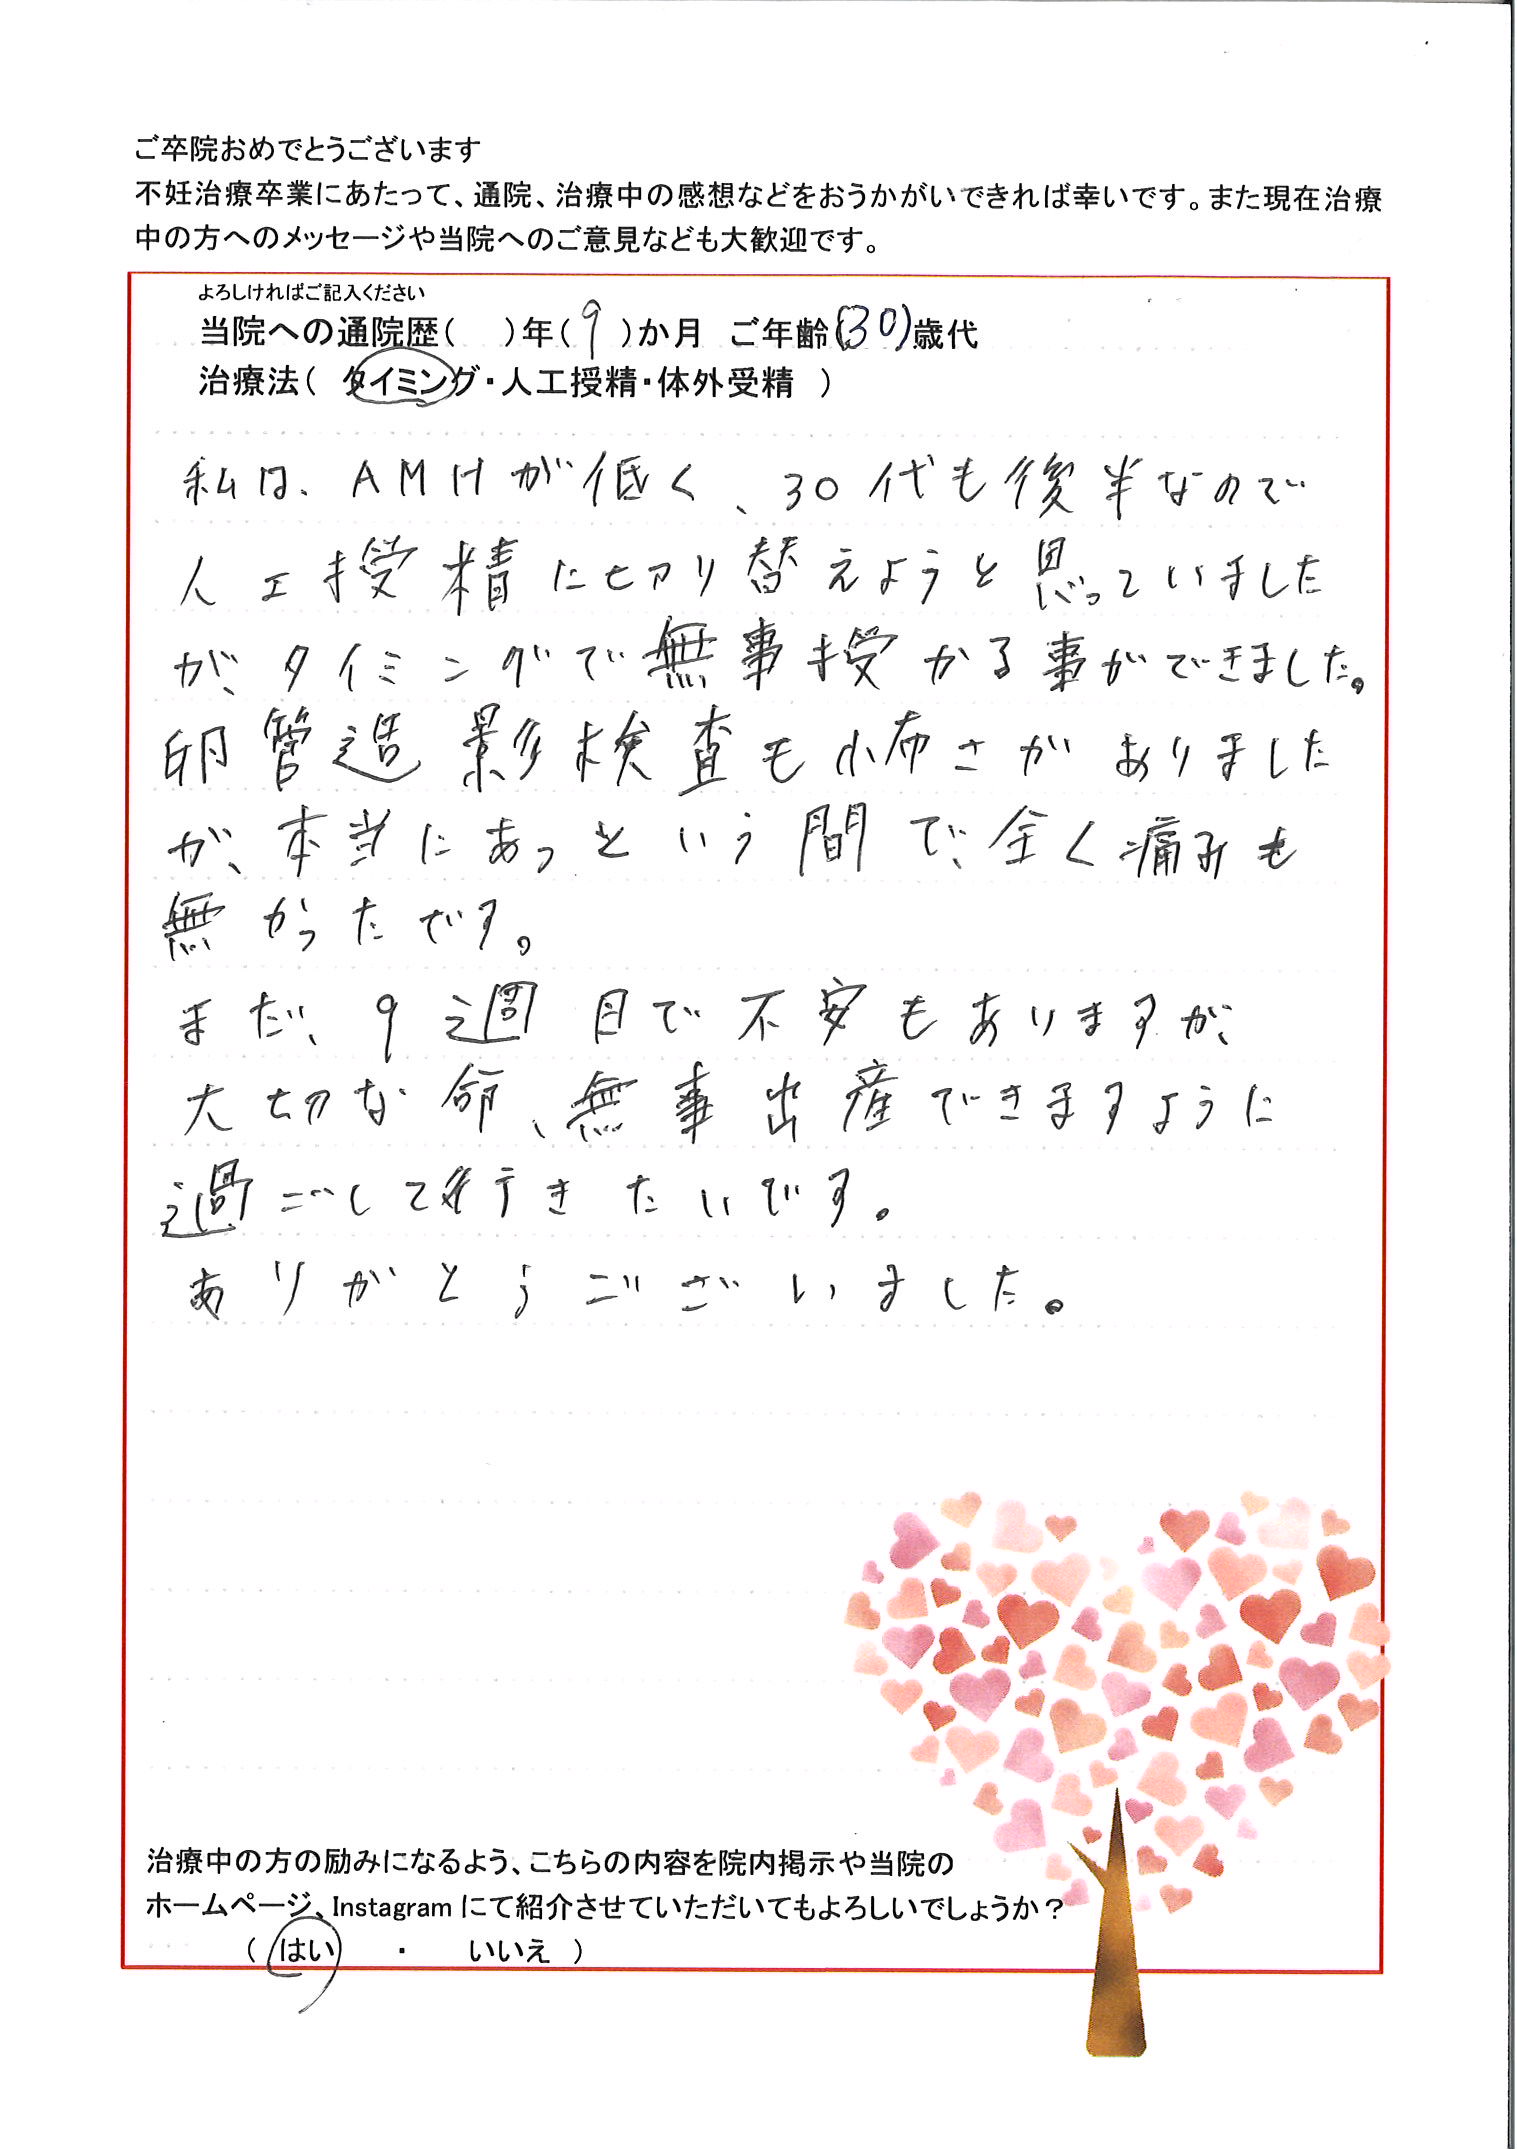 ご卒院おめでとうございます
不妊治療卒業にあたって、通院、治療中の感想などをおうかがいできれば幸いです。また現在治療
中の方へのメッセージや当院へのご意見なども大歓迎です。
よろしければご記入ください
当院への通院歴(　)年(9)か月　ご年齢(30)歳代
治療法(　タイミング・人工授精・体外受精　)
私は、AMHが低く、30代も後半なので
人工授精に切り替えようと思っていました
が、タイミングで無事授かる事ができました。
卵管造影検査も怖さがありました
が、本当にあっという間で、全く痛みも
無かったです。
まだ、9週目で不安もありますが、
大切な命、無事出産できますように
過ごして行きたいです。
ありがとうございました。
治療中の方の励みになるよう、こちらの内容を院内掲示や当院の
ホームページ、Instagramにて紹介させていただいてもよろしいでしょうか？
(　はい　・　いいえ　)